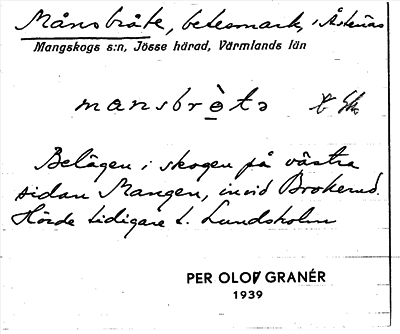 Månsbråte, betesmark, i Åstenäs
Mangskogs s:n, Jösse härad, Värmlands län
mansbrètə
Belägen i skogen på västra
sidan Mangen, invid Brokerud.
Hörde tidigare t. Lundsholm
PER OLOF GRANÉR
1939